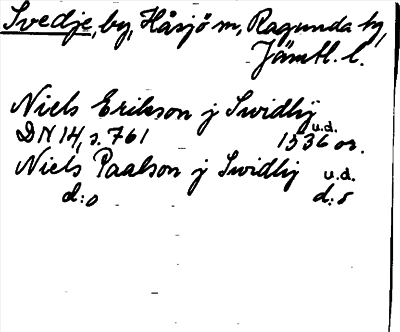 Svedje, by, Håsjö sn, Ragunda tg,
Jämtl. l.
Niels Erikson j Swidhij
DN 14, s. 761 1536 u.d. or.
Niels Paalson j Swidhij u.d.
d:o d:o